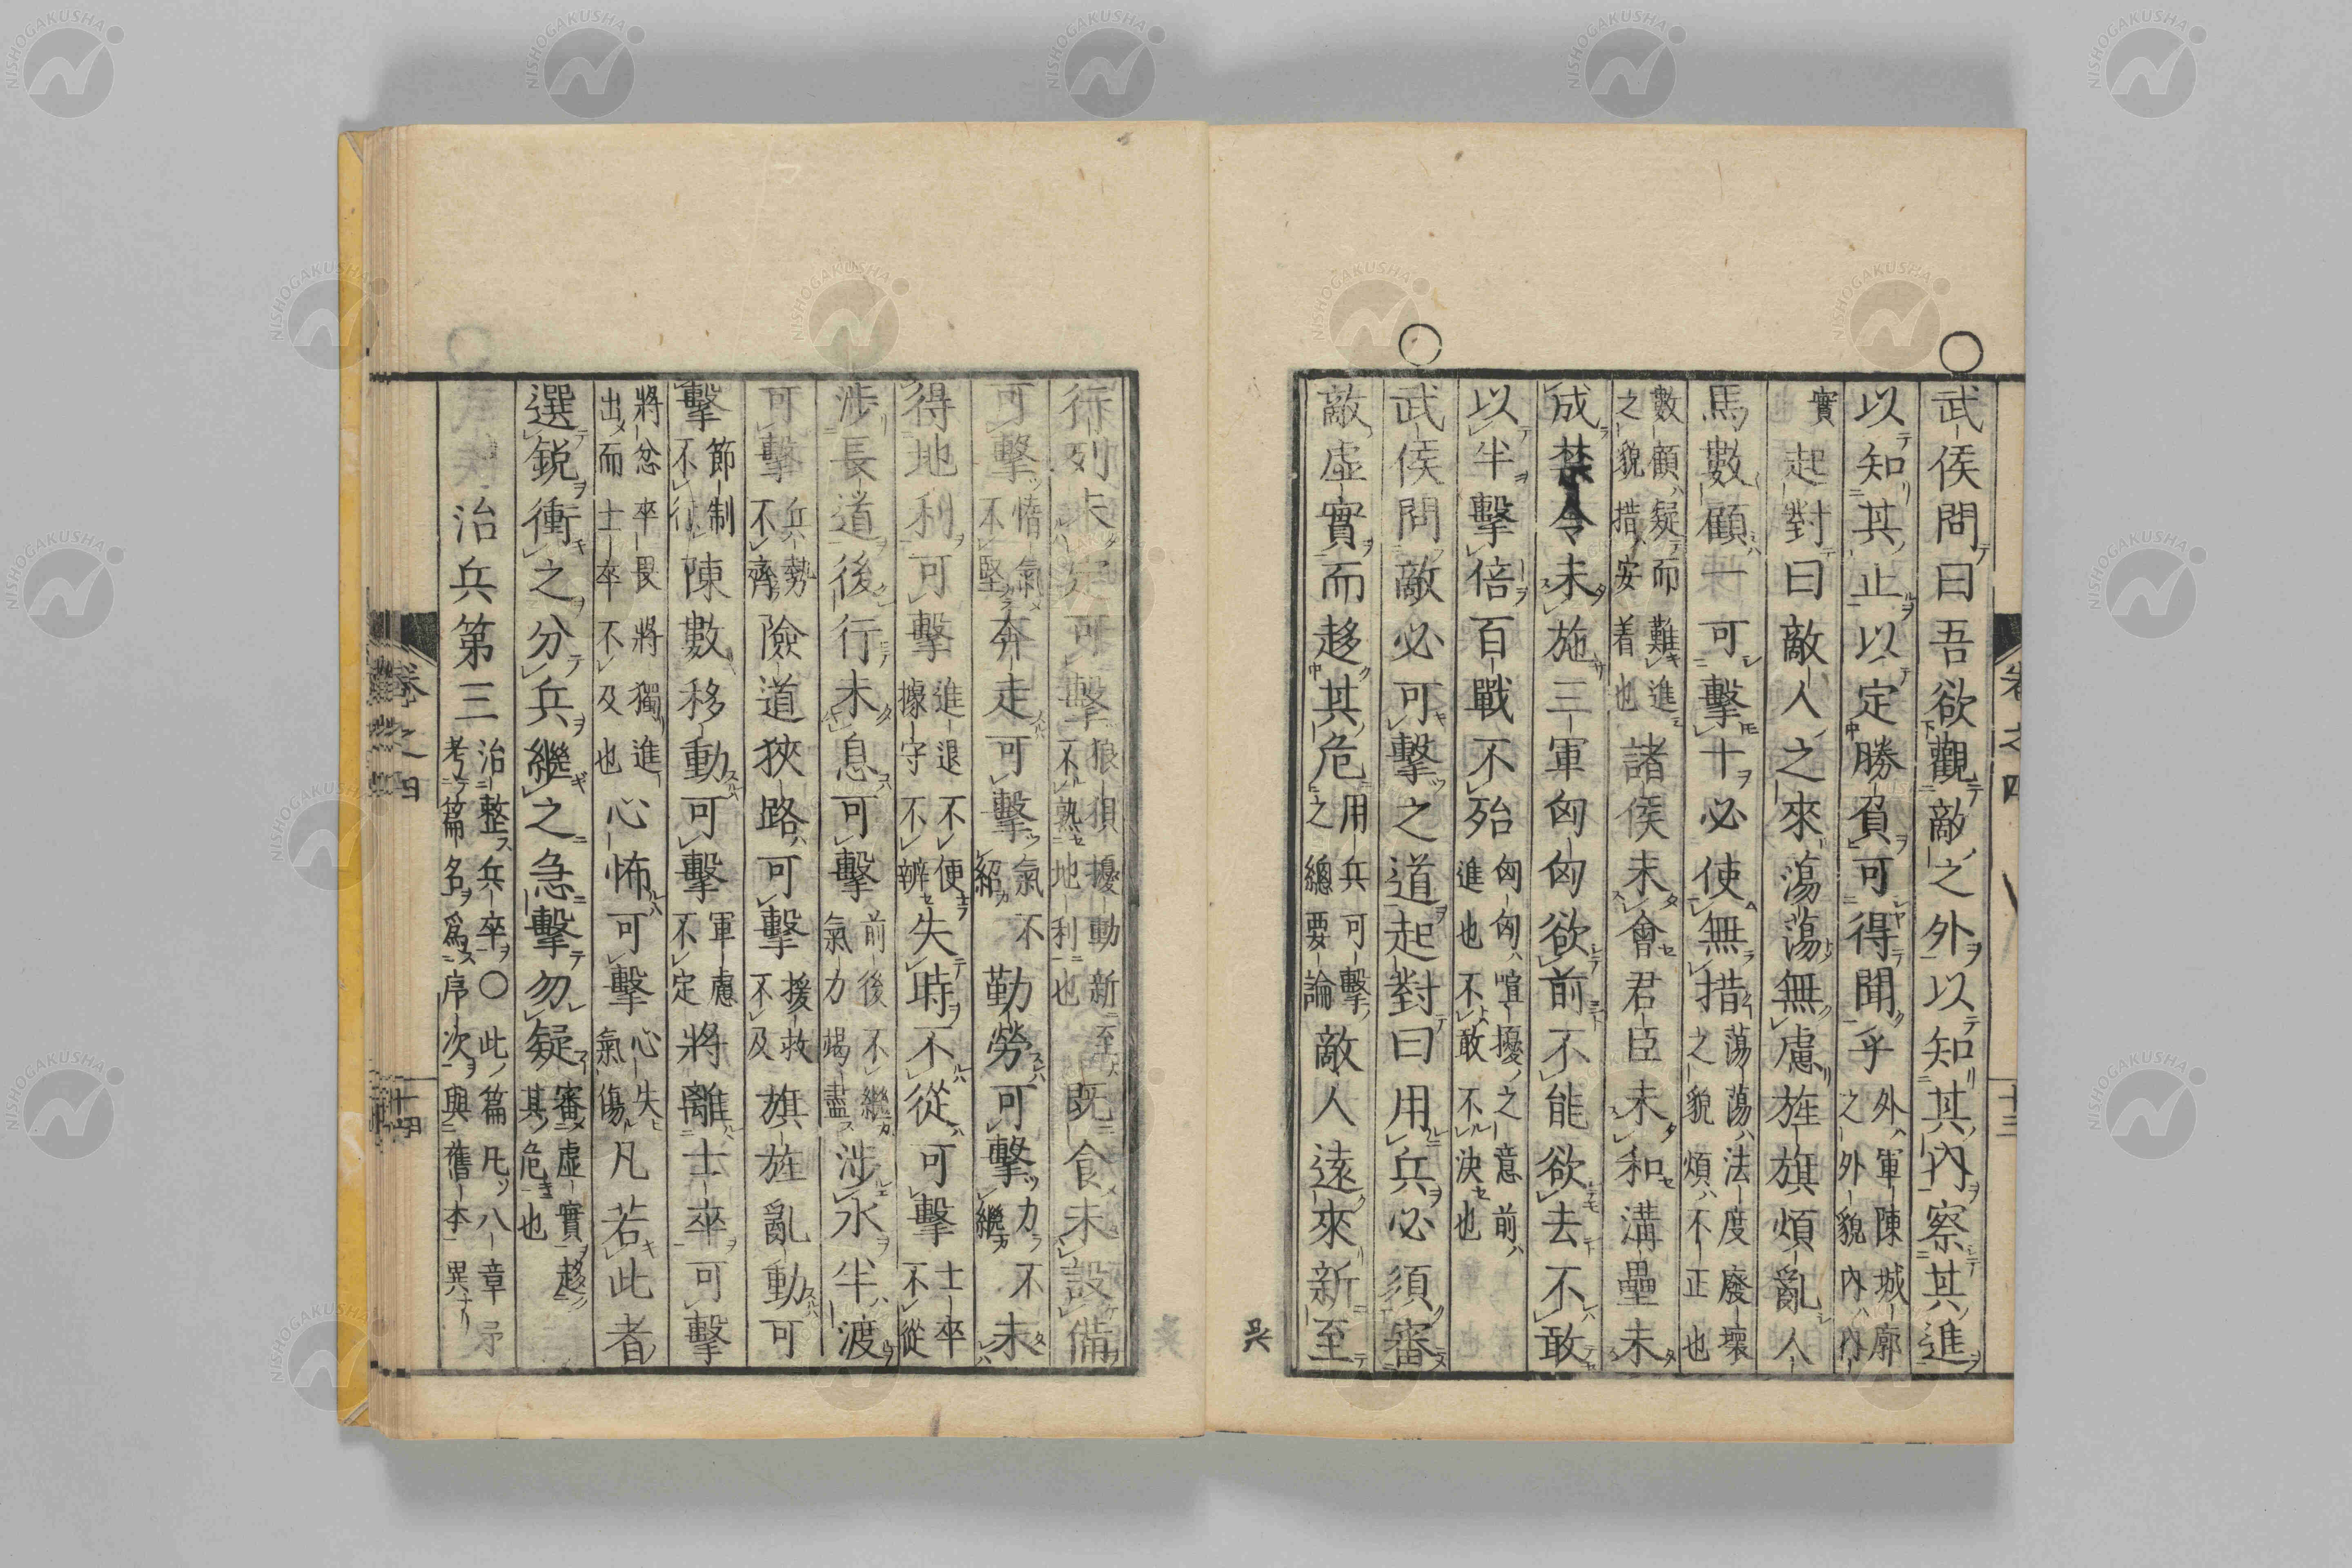 卷之四 十三
武侯問曰吾欲觀敵之外以知其內察其進
以知其止以定勝負可得聞乎外軍陳城廓之外貌內內
實起對曰敵人之來蕩蕩無慮旌旗煩亂人
馬數顧一可擊十必使無措蕩蕩法度廢壞之貌煩不正也
數顧疑而難進之貌措安着也諸侯未會君臣未和溝壘未
成禁令未施三軍匈匈欲前不能欲去不敢
以半擊倍百戰不殆匈匈喧擾之意前進也不敢不決也
武侯問敵必可擊之道起對曰用兵必須審
敵虛實而趍其危用兵可擊之總要論敵人遠來新至
吳
行列未定可擊狼狽擾動新至不熟地利也既食未設備
可擊惰氣不堅奔走可擊氣不紹勤勞可擊力不繼未
得地利可擊進退不便據守不辨失時不從可擊士卒不從
涉長道後行未息可擊前後不繼氣力竭盡涉水半渡
可擊兵勢不齊險道狹路可擊援救不及旗旌亂動可
擊節制不行陳數移動可擊軍慮不定將離士卒可擊
將忽卒畏將獨進出而士卒不及也心怖可擊心失氣傷凡若此者
選銳衝之分兵繼之急擊勿疑審虛實趍其危也
治兵第三治整兵卒○此篇凡八章予考篇名爲序次與舊本異
卷之四 十四
NISHOGAKUSHA